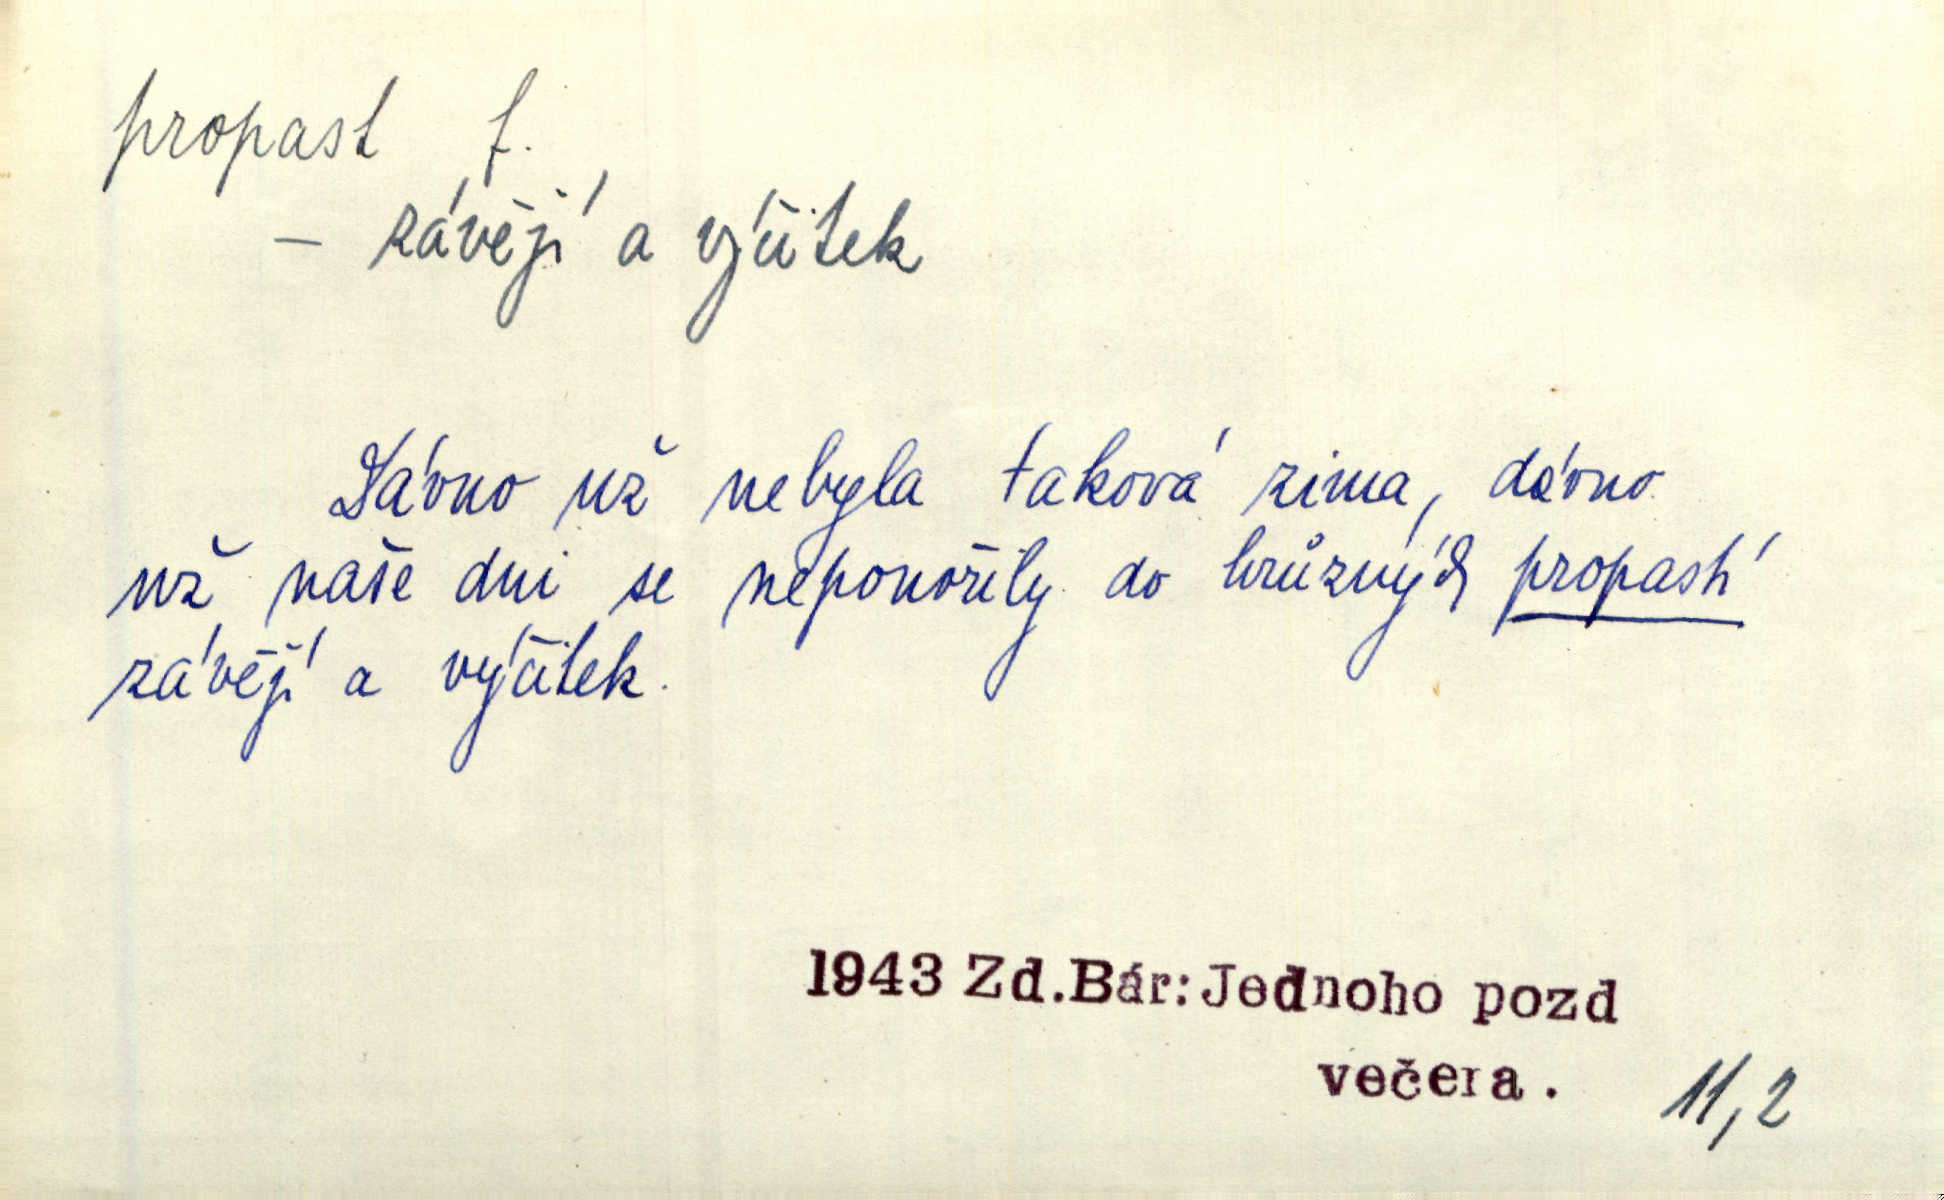 propast f.
– závějí a výčitek
Dávno už nebyla taková zima, dávno
už naše dni se neponořily do hrůzných propastí
závějí a výčitek.
1943 Zd.Bár: Jednoho pozd
večera.
11,2